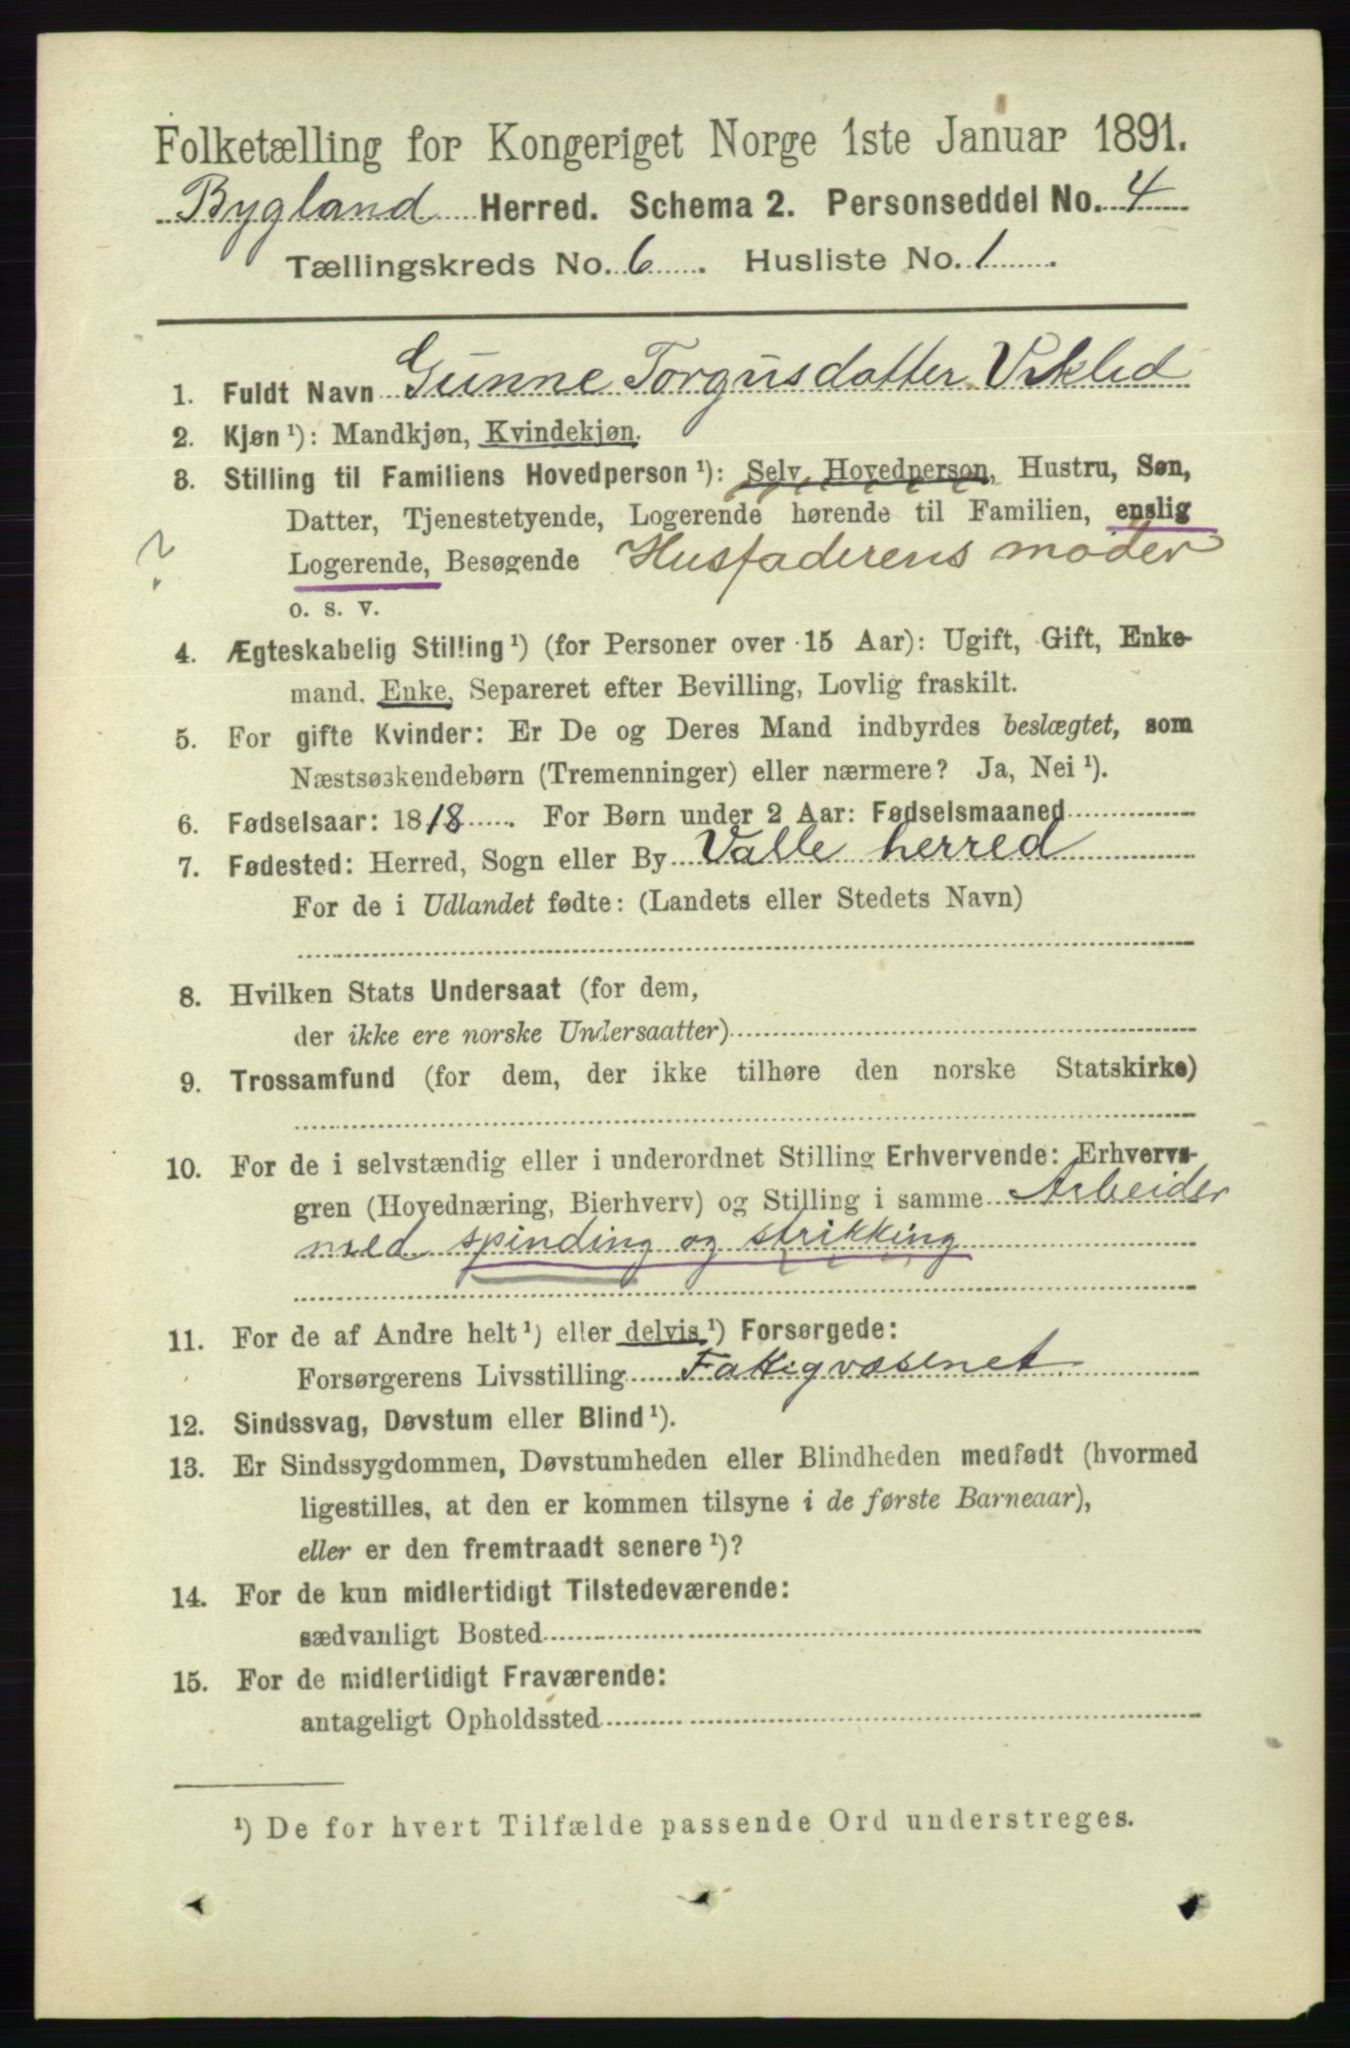 Folketælling for Kongeriget Norge 1ste Januar 1891.
Bygland Herred. Schema 2. Personseddel No. 4
Tællingskreds No. 6 . Husliste No. 1 .
1. Fuldt Navn Gunne Torgusdatter
2. Kjøn ¹): Mandkjøn, Kvindekjøn.
3. Stilling til Familiens Hovedperson ¹): Selv Hovedperson, Hustru, Søn,
Datter, Tjenestetyende, Logerende hørende til Familien, enslig
? Logerende, Besøgende Husfaderens moder
o. s. v.
4. Ægteskabelig Stilling ¹) (for Personer over 15 Aar): Ugift, Gift, Enke-
mand, Enke, Separeret efter Bevilling, Lovlig fraskilt.
5. For gifte Kvinder: Er De og Deres Mand indbyrdes beslægtet, som
Næstsøskendebørn (Tremenninger) eller nærmere? Ja, Nei ¹).
6. Fødselsaar: 1818 . For Børn under 2 Aar: Fødselsmaaned
7. Fødested: Herred, Sogn eller By Valle herred
For de i Udlandet fødte: (Landets eller Stedets Navn)
8. Hvilken Stats Undersaat (for dem,
der ikke ere norske Undersaatter)
9. Trossamfund (for dem, der ikke tilhøre den norske Statskirke)
10. For de i selvstændig eller i underordnet Stilling Erhvervende: Erhvervs-
gren (Hovednæring, Bierhverv) og Stilling i samme Arbeider
med spinding og strikking
11. For de af Andre helt ¹) eller delvis ¹) Forsørgede:
Forsørgerens Livsstilling Fattigvæsenet
12. Sindssvag, Døvstum eller Blind ¹).
13. Er Sindssygdommen, Døvstumheden eller Blindheden medfødt (hvormed
ligestilles, at den er kommen tilsyne i de første Barneaar),
eller er den fremtraadt senere ¹)?
14. For de kun midlertidigt Tilstedeværende:
sædvanligt Bosted
15. For de midlertidigt Fraværende:
antageligt Opholdssted
¹) De for hvert Tilfælde passende Ord understreges.